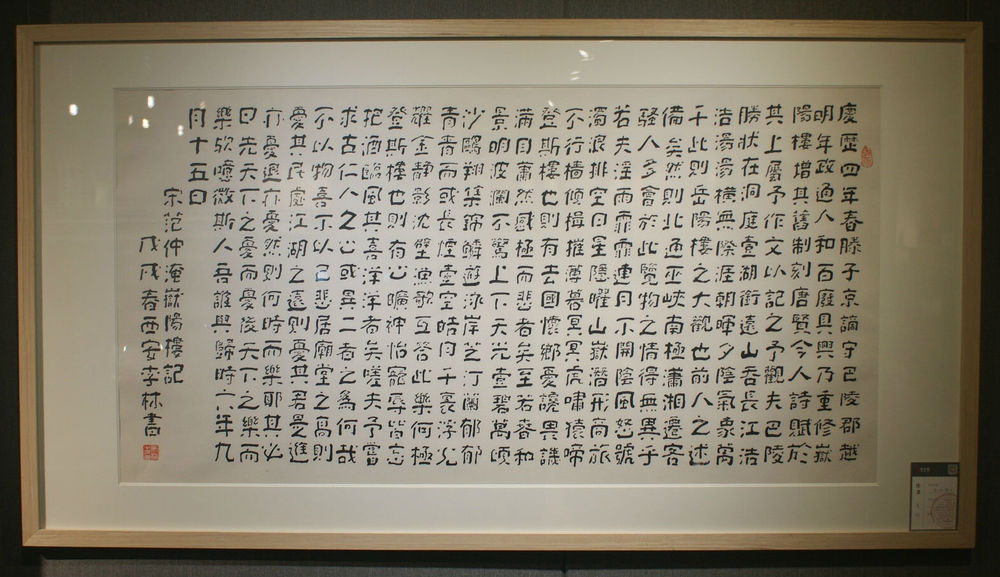 慶歷四年春滕子京謫守巴陵郡越
明年政通人和百廢具興乃重修嶽
陽樓增其舊制刻唐賢今人詩賦於
其上屬予作文以記之予觀夫巴陵
勝狀在洞庭壹湖銜遠山吞長江浩
浩湯湯橫無際涯朝暉夕陰氣象萬
千此則岳陽樓之大觀也前人之述
備矣然則北通巫峽南極瀟湘遷客
騷人多會於此覽物之情得無異乎
若夫淫雨霏霏連月不開陰風怒號
濁浪排空日星隱曜山嶽潛形商旅
不行檣傾楫摧薄暮冥冥虎嘯猿啼
登斯樓也則有去國懷鄉憂讒畏譏
滿目蕭然感極而悲者矣至若春和
景明波瀾不驚上下天光壹碧萬頃
沙鷗翔集錦鱗遊泳岸芷汀蘭郁郁
青青而或長煙壹空皓月千里浮光
耀金靜影沈璧漁歌互答此樂何極
登斯樓也則有心曠神怡寵辱皆忘
把酒臨風其喜洋洋者矣嗟夫予嘗
求古仁人之心或異二者之為何哉
不以物喜不以己悲居廟堂之高則
憂其民處江湖之遠則憂其君是進
亦憂退亦憂然則何時而樂耶其必
曰先天下之憂而憂後天下之樂而
樂歟噫微斯人吾誰與歸時六年九
月十五日
宋范仲淹嶽陽樓記
戊戌春西安李林書